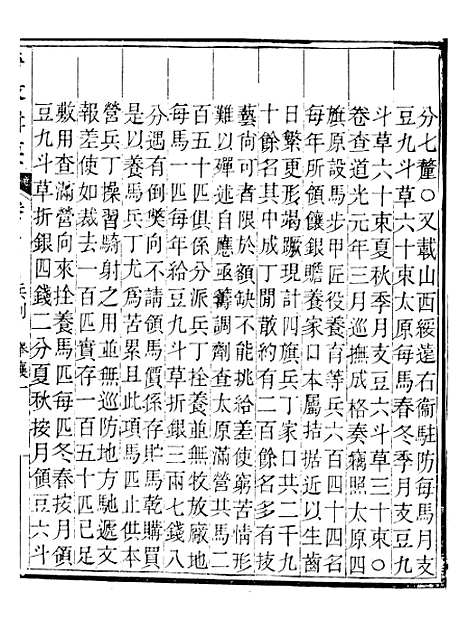 分七釐○又載山西綏遠右衞駐防每馬月支
豆九斗草六十束太原每馬春冬季月支豆九
斗草六十束夏秋季月支豆六斗草三十束○
卷查道光元年三月巡撫成格奏竊照太原四
旗原設馬步甲匠役養育等兵六百四十四名
每年所領餉銀贍養家口本屬拮据近以生齒
日繁更形竭蹶現計四旗兵丁家口共二千九
十餘名其中成丁閒散約有二百餘名多有技
藝尙可者限於額缺不能挑給差使窮苦情形
難以殫述自應亟籌調劑查太原滿營共馬二
百五十匹俱係分派兵丁拴養並無牧放廠地
每馬一匹每年給豆九斗草折銀三兩七錢八
分遇有倒斃向不請領馬價係存貯馬乾購買
是以養馬兵丁尤爲苦累且此項馬匹止供本
營兵丁操習騎射之用並無巡防地方馳遞文
報差使如裁去一百匹實存一百五十匹已足
敷用查滿營向來拴養馬匹每匹冬春按月領
豆九斗草折銀四錢二分夏秋按月領豆六斗